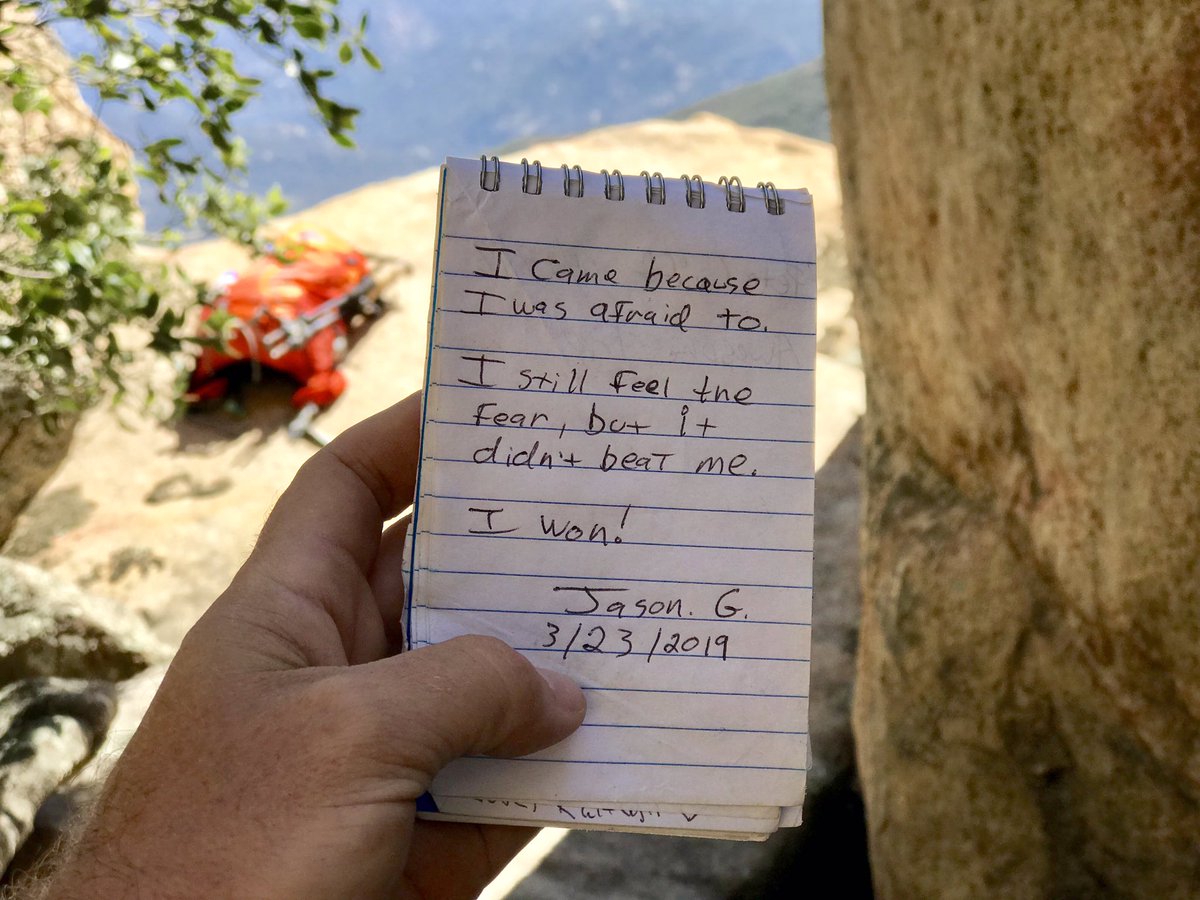 I came because
I was afraid to.
I still feel the
fear, but it
didn't beat me.
I won!
Jason. G.
3/23/2019